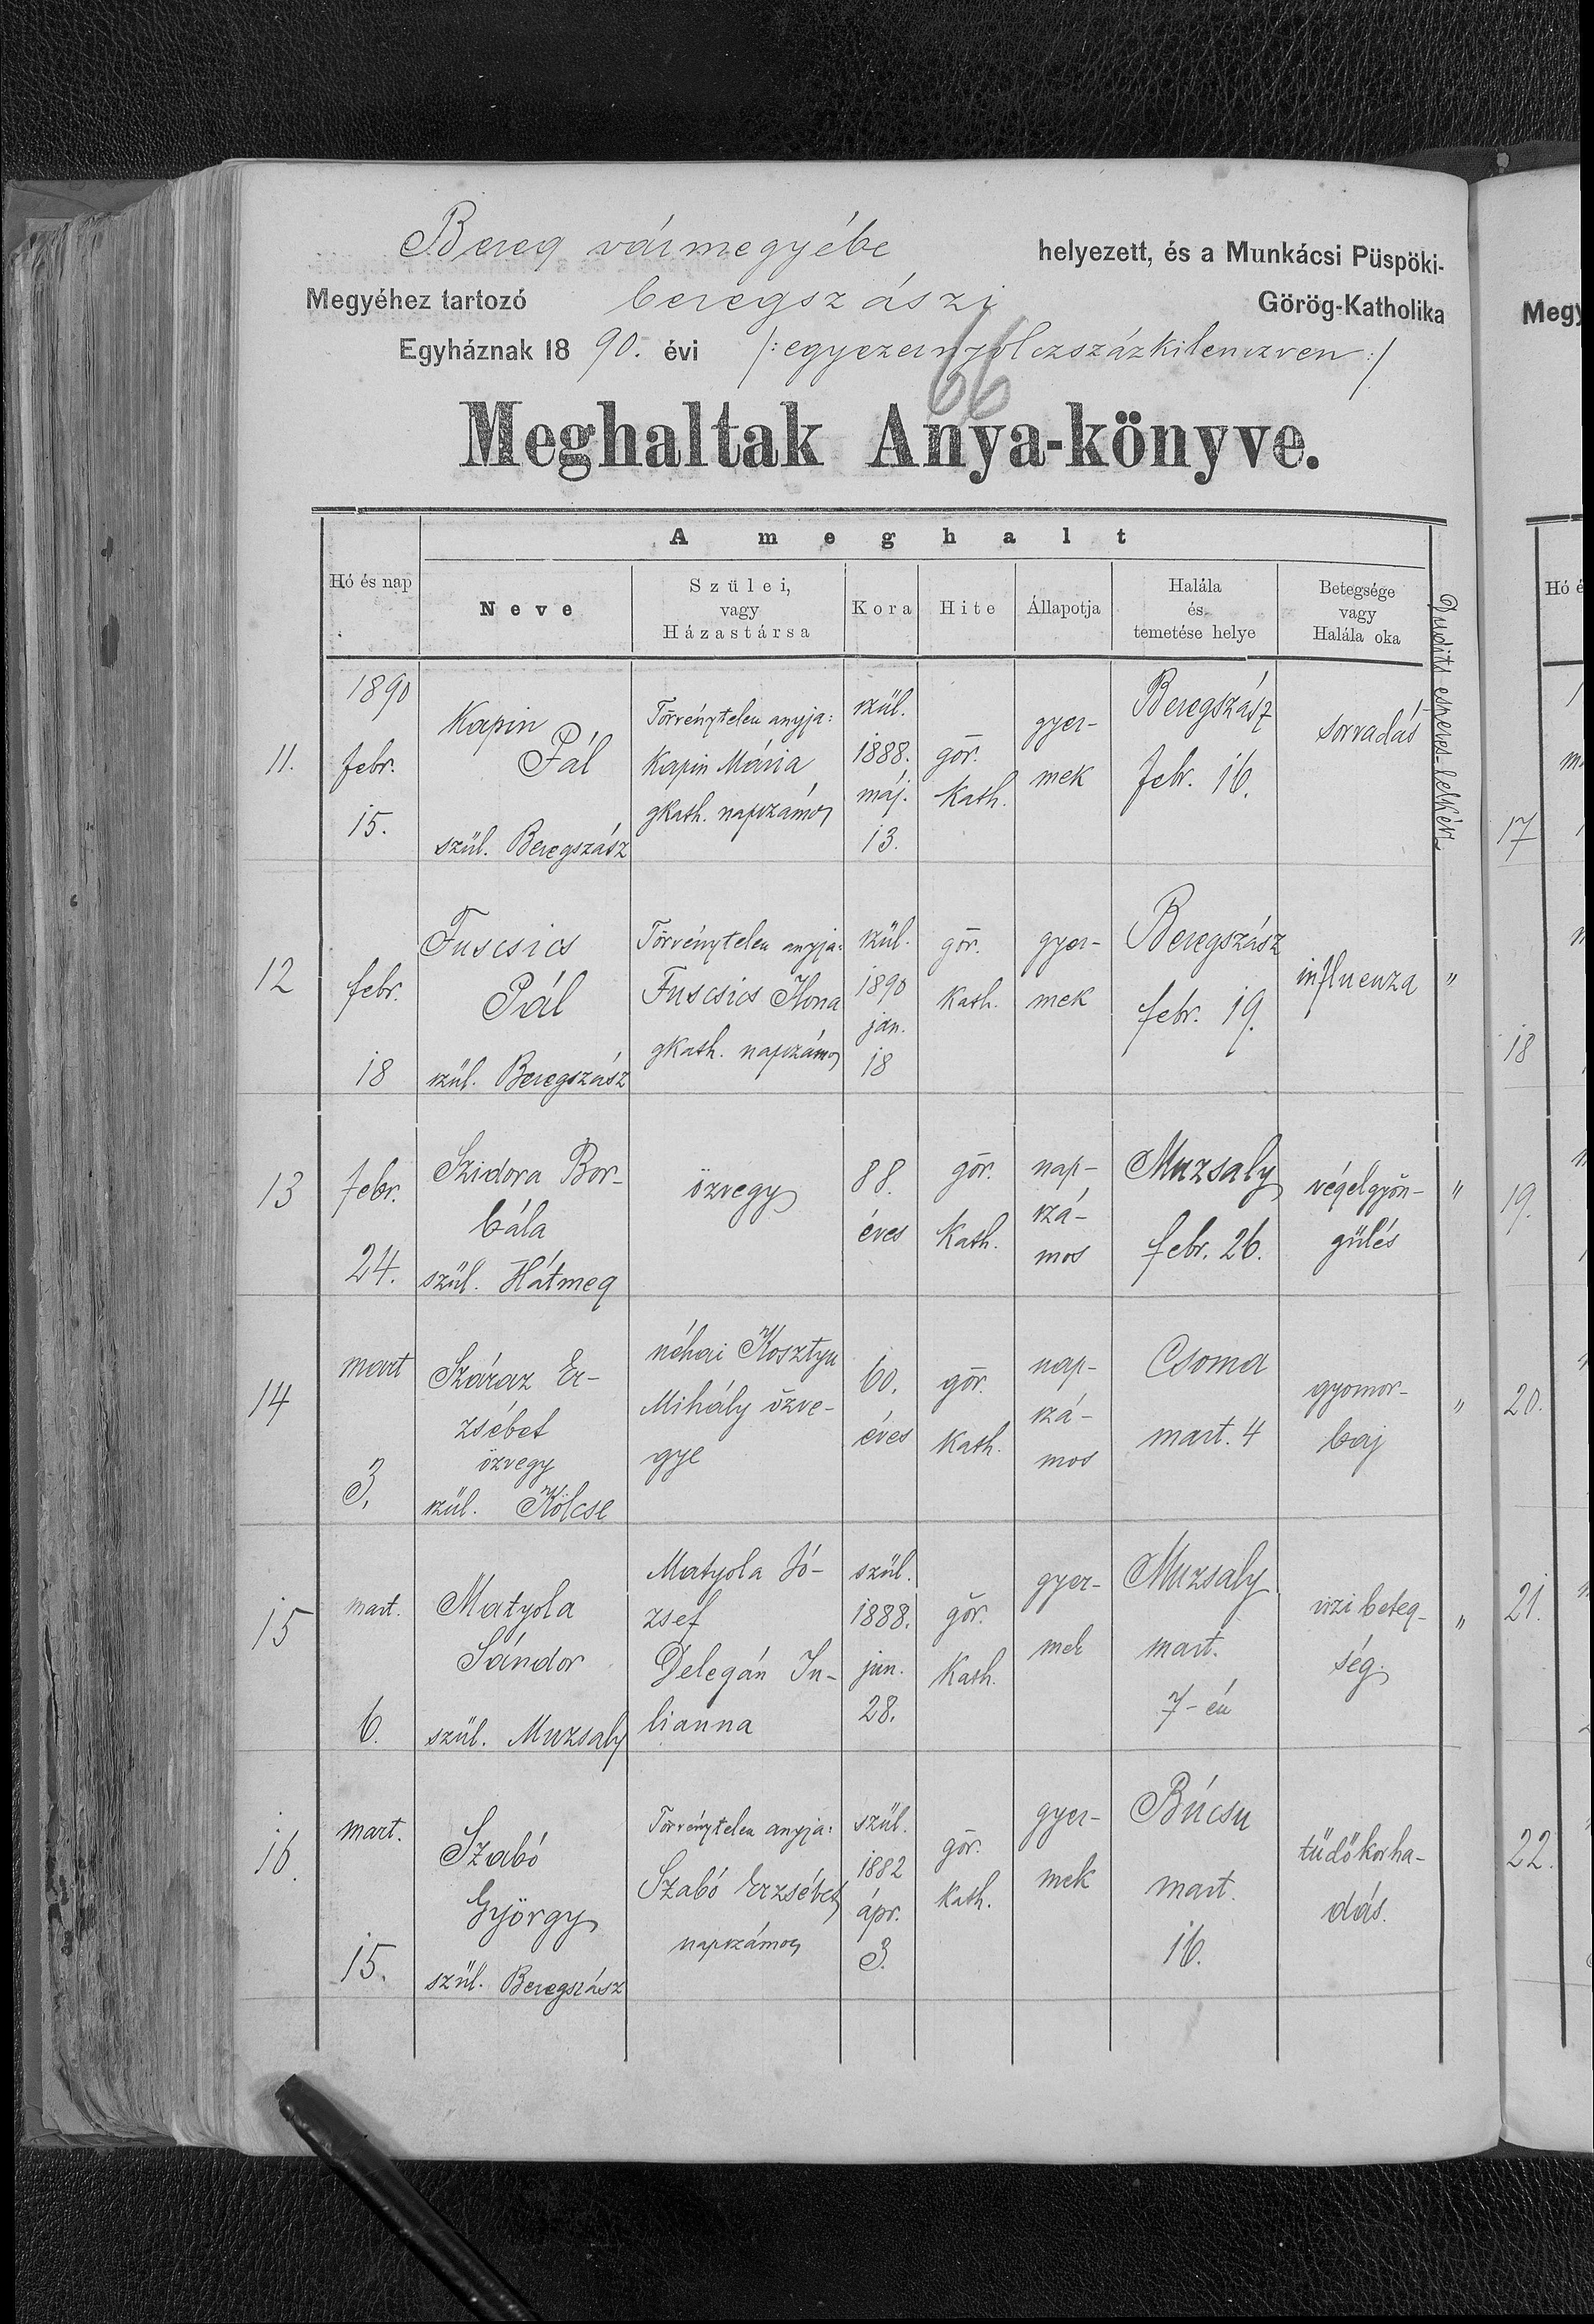 Bereg vármegyébe helyezett, és a Munkácsi Püspöki-
Megyéhez tartozó beregszászi Görög-Katholika
Egyháznak 18 90. évi /: egyezernyolczszázkilenczven :/
66
Meghaltak Anya-könyve.
A meghalt
Hó és nap
Neve
Szülei,
vagy
Házastársa
Kora
Hite
Állapotja
Halála
és
temetése helye
Betegsége
vagy
Halála oka
esperes-lelkész
11.
1890
febr.
15.
Kapin
Pál
szül. Beregszász
Törvénytelen anyja:
Kapin Mária
gkath. napszámos
szül.
1888.
máj.
13.
gör.
kath.
gyer-
mek
Beregszász
febr. 16.
sorvadás
12
febr.
18
Fuscsics
Pál
szül. Beregszász
Törvénytelen anyja:
Fuscsics Ilona
gkath. napszámos
szül.
1890
jan.
18
gör.
kath.
gyer-
mek
Beregszász
febr. 19.
influenza
"
13
febr.
24.
Szidora Bor-
bála
szül. Hátmeg
özvegy
88.
éves
gör.
kath.
nap-
szá-
mos
Muzsaly
febr. 26.
végelgyön-
gülés
"
14
mart
3.
Száraz Er-
zsébet
özvegy
szül. Kölcse
néhai Kosztyu
Mihály özve-
gye
60.
éves
gör.
kath.
nap-
szá-
mos
Csoma
mart. 4
gyomor-
baj
"
15
mart.
6.
Matyola
Sándor
szül. Muzsaly
Matyola Jó-
zsef
Delegán Ju-
lianna
szül.
1888.
jun.
28.
gör.
kath.
gyer-
mek
Muzsaly
mart.
7-én
vizi beteg-
ség
"
16.
mart.
15.
Szabó
György
szül. Beregszász
Törvénytelen anyja:
Szabó Erzsébet
napszámos
szül.
1882
ápr.
3.
gör.
kath.
gyer-
mek
Búcsu
mart.
16.
tüdőkorha-
dás.
Megy
Hó é
17
18
19.
20.
21.
22.